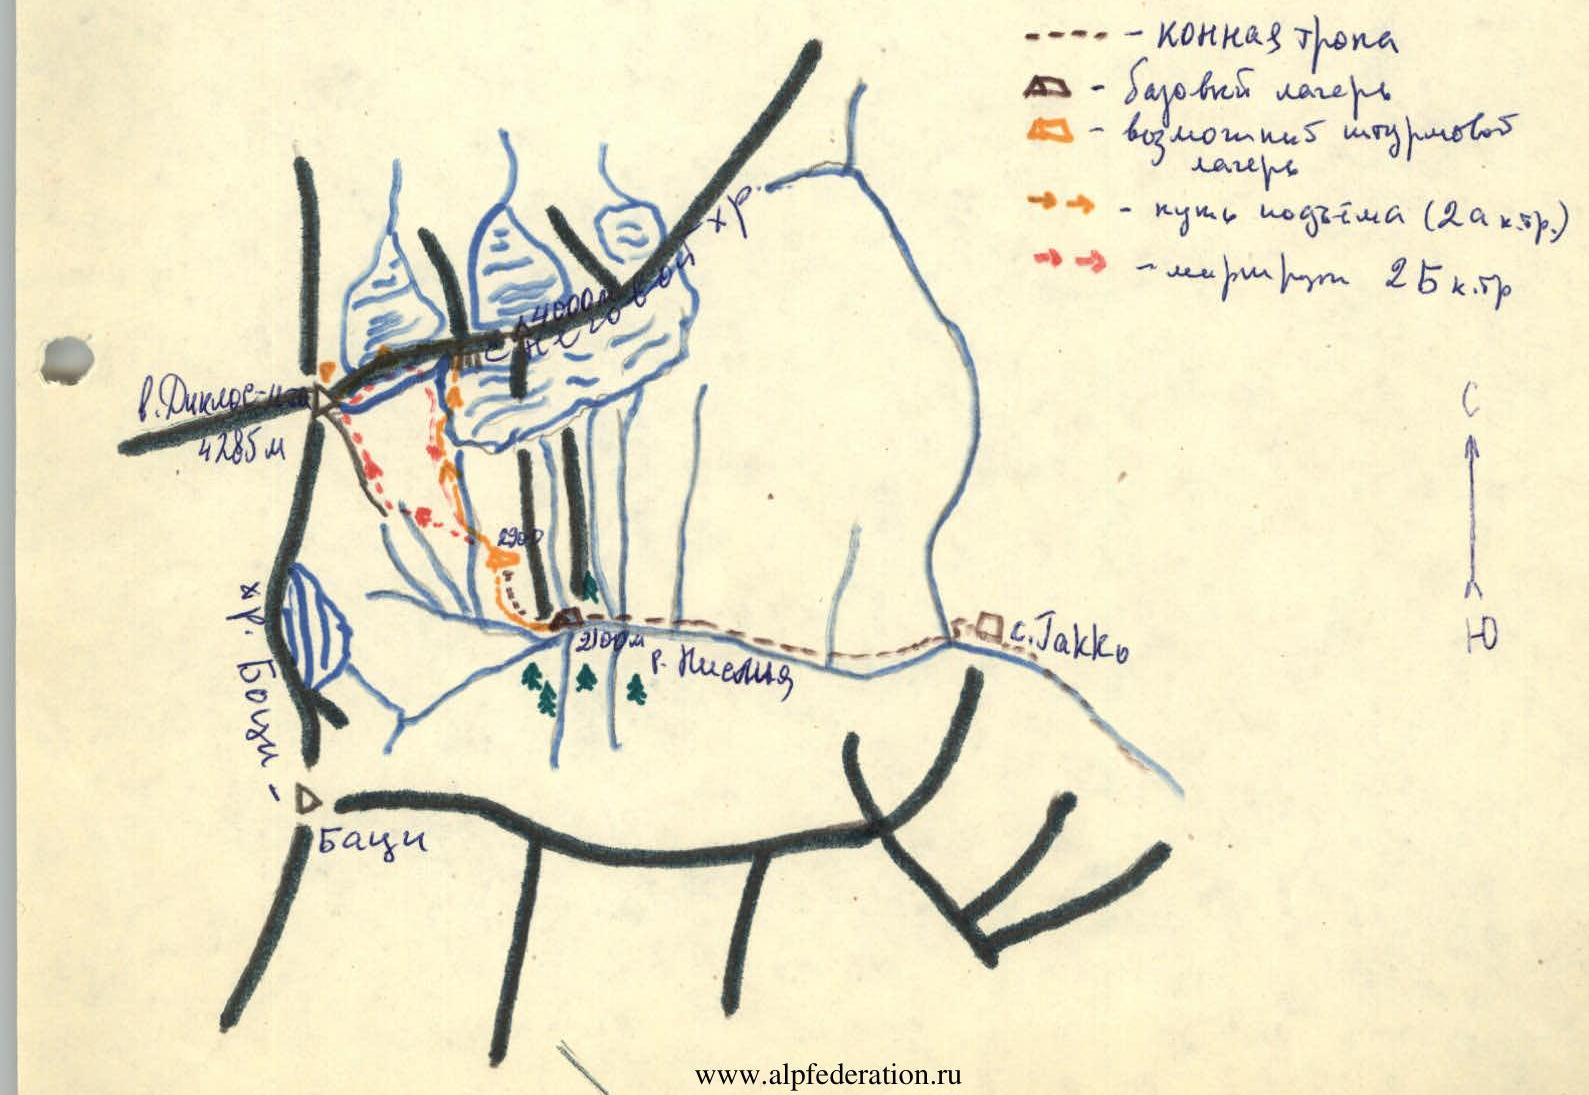 - конная тропа
- базовый лагерь
- возможный штурмовой
лагерь
- путь подъёма (2а к.тр.)
- маршрут 2Б к.тр
хр.
Снеговой
4000м
в. Диклос-мта
4285м
С
Ю
2900
2100м
р. Кислия
с. Гакко
хр. Боцхи -
Баци
www.alpfederation.ru